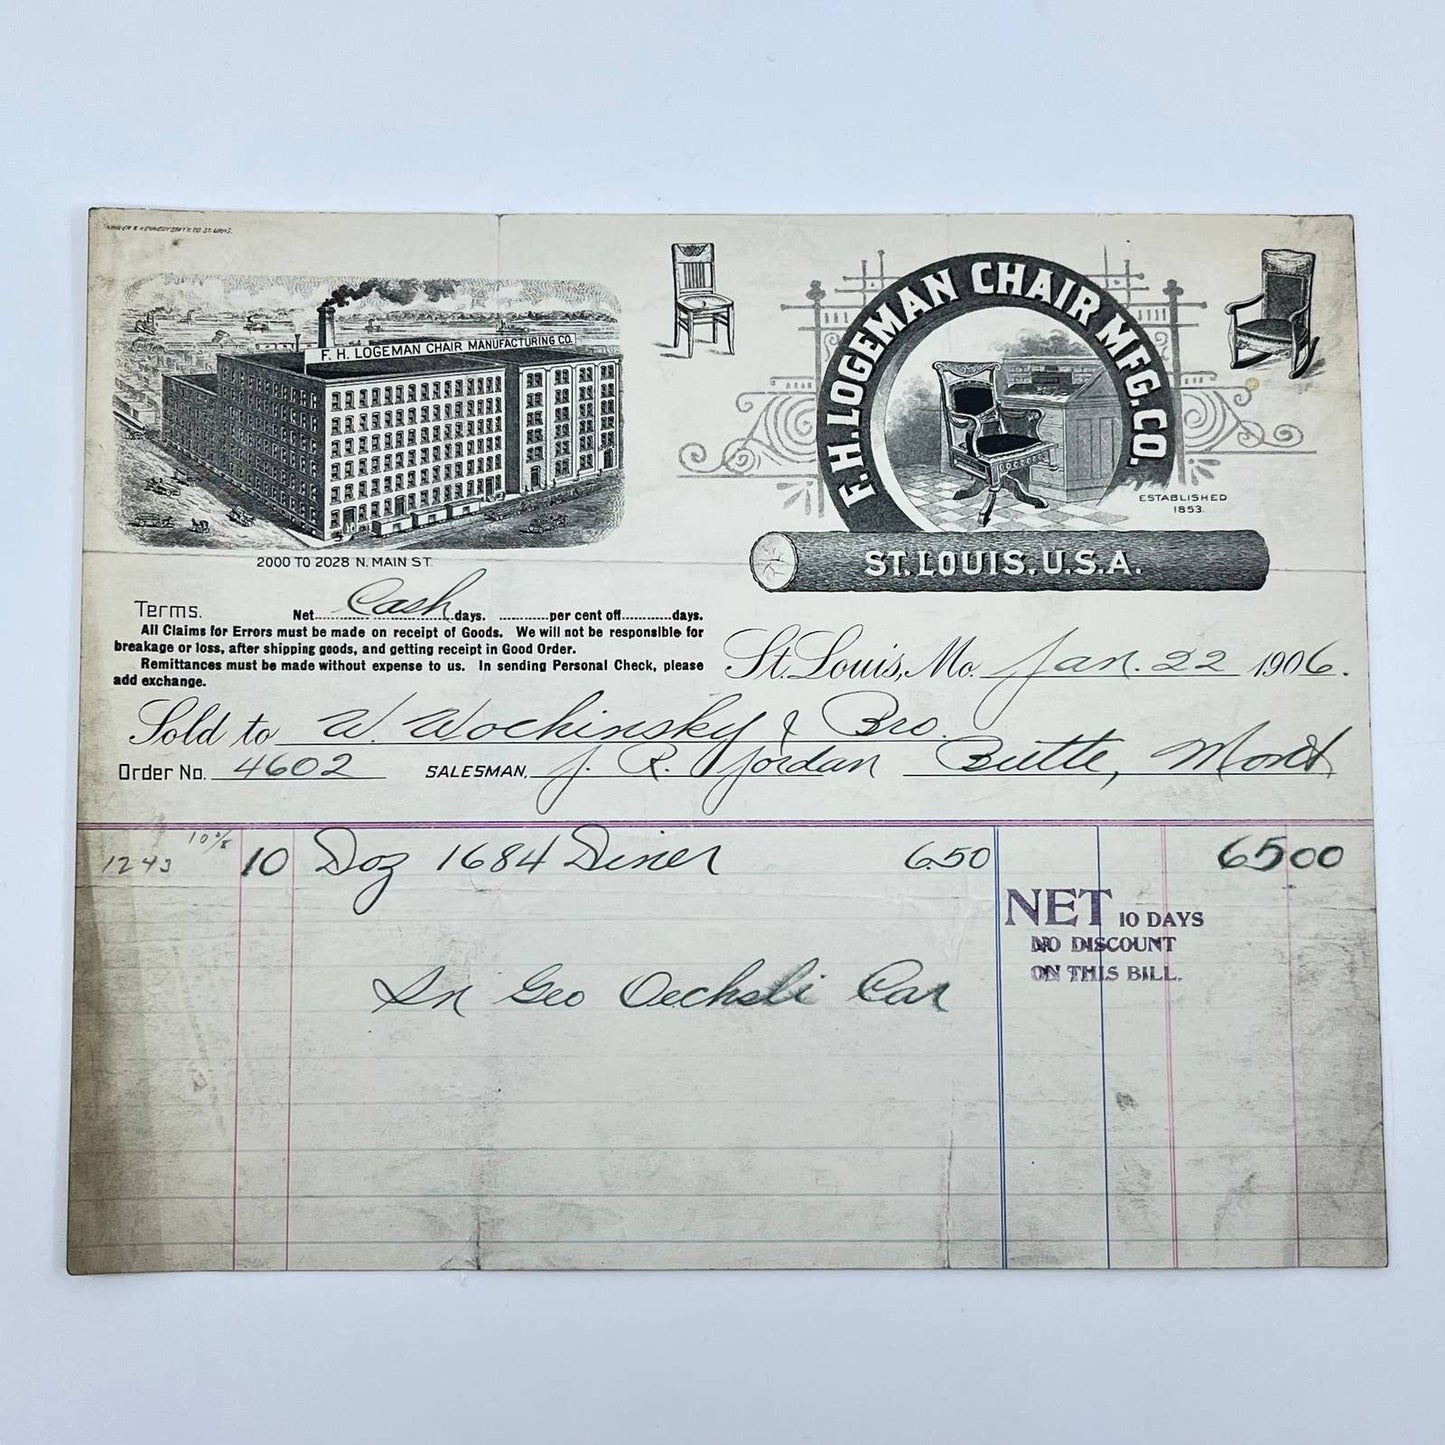 F. H. LOGEMAN CHAIR MANUFACTURING CO.
2000 TO 2028 N. MAIN ST.
F. H. LOGEMAN CHAIR MFG. CO.
ESTABLISHED
1853.
ST. LOUIS, U.S.A.
Terms. Net Cash days. per cent off days.
All Claims for Errors must be made on receipt of Goods. We will not be responsible for
breakage or loss, after shipping goods, and getting receipt in Good Order.
Remittances must be made without expense to us. In sending Personal Check, please
add exchange.
St. Louis, Mo. Jan. 22 1906.
Sold to W. Wochinsky & Bro.
Order No. 4602 SALESMAN, J. R. Jordan Butte, Mont
1243 10 Doz 1684 Diner 6.50 6500
NET 10 DAYS
NO DISCOUNT
ON THIS BILL.
In Geo Oechsli Car